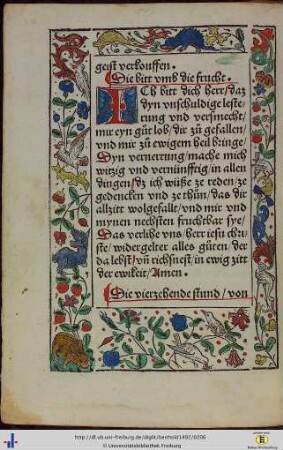 geist verlouffen.
Die bitt vmb die frucht.
ICh bitt dich herr/daz
dyn vnschuldige leste-
rung vnd versmecht/
mir eyn gůt lob/dir zů gefallen/
vnd mir zů ewigem heil bringe
Dyn vernerrung/mache mich
witzig vnd vernünfftig/in allen
dingen/dz ich wüsse ze reden/ze
gedencken vnd ze thůn/das dir
allzitt wolgefall/vnd mir vnd
mynen nechsten fruchtbar sye/
Das verlihe vns herr iesu chri-
ste/widergelter alles gůten der
da lebst/vñ richsnest/in ewig zitt
der ewikeit/Amen.
Die vierzehende stund/von
http://dl.ub.uni-freiburg.de/diglit/berthold1492/0206
© Universitätsbibliothek Freiburg